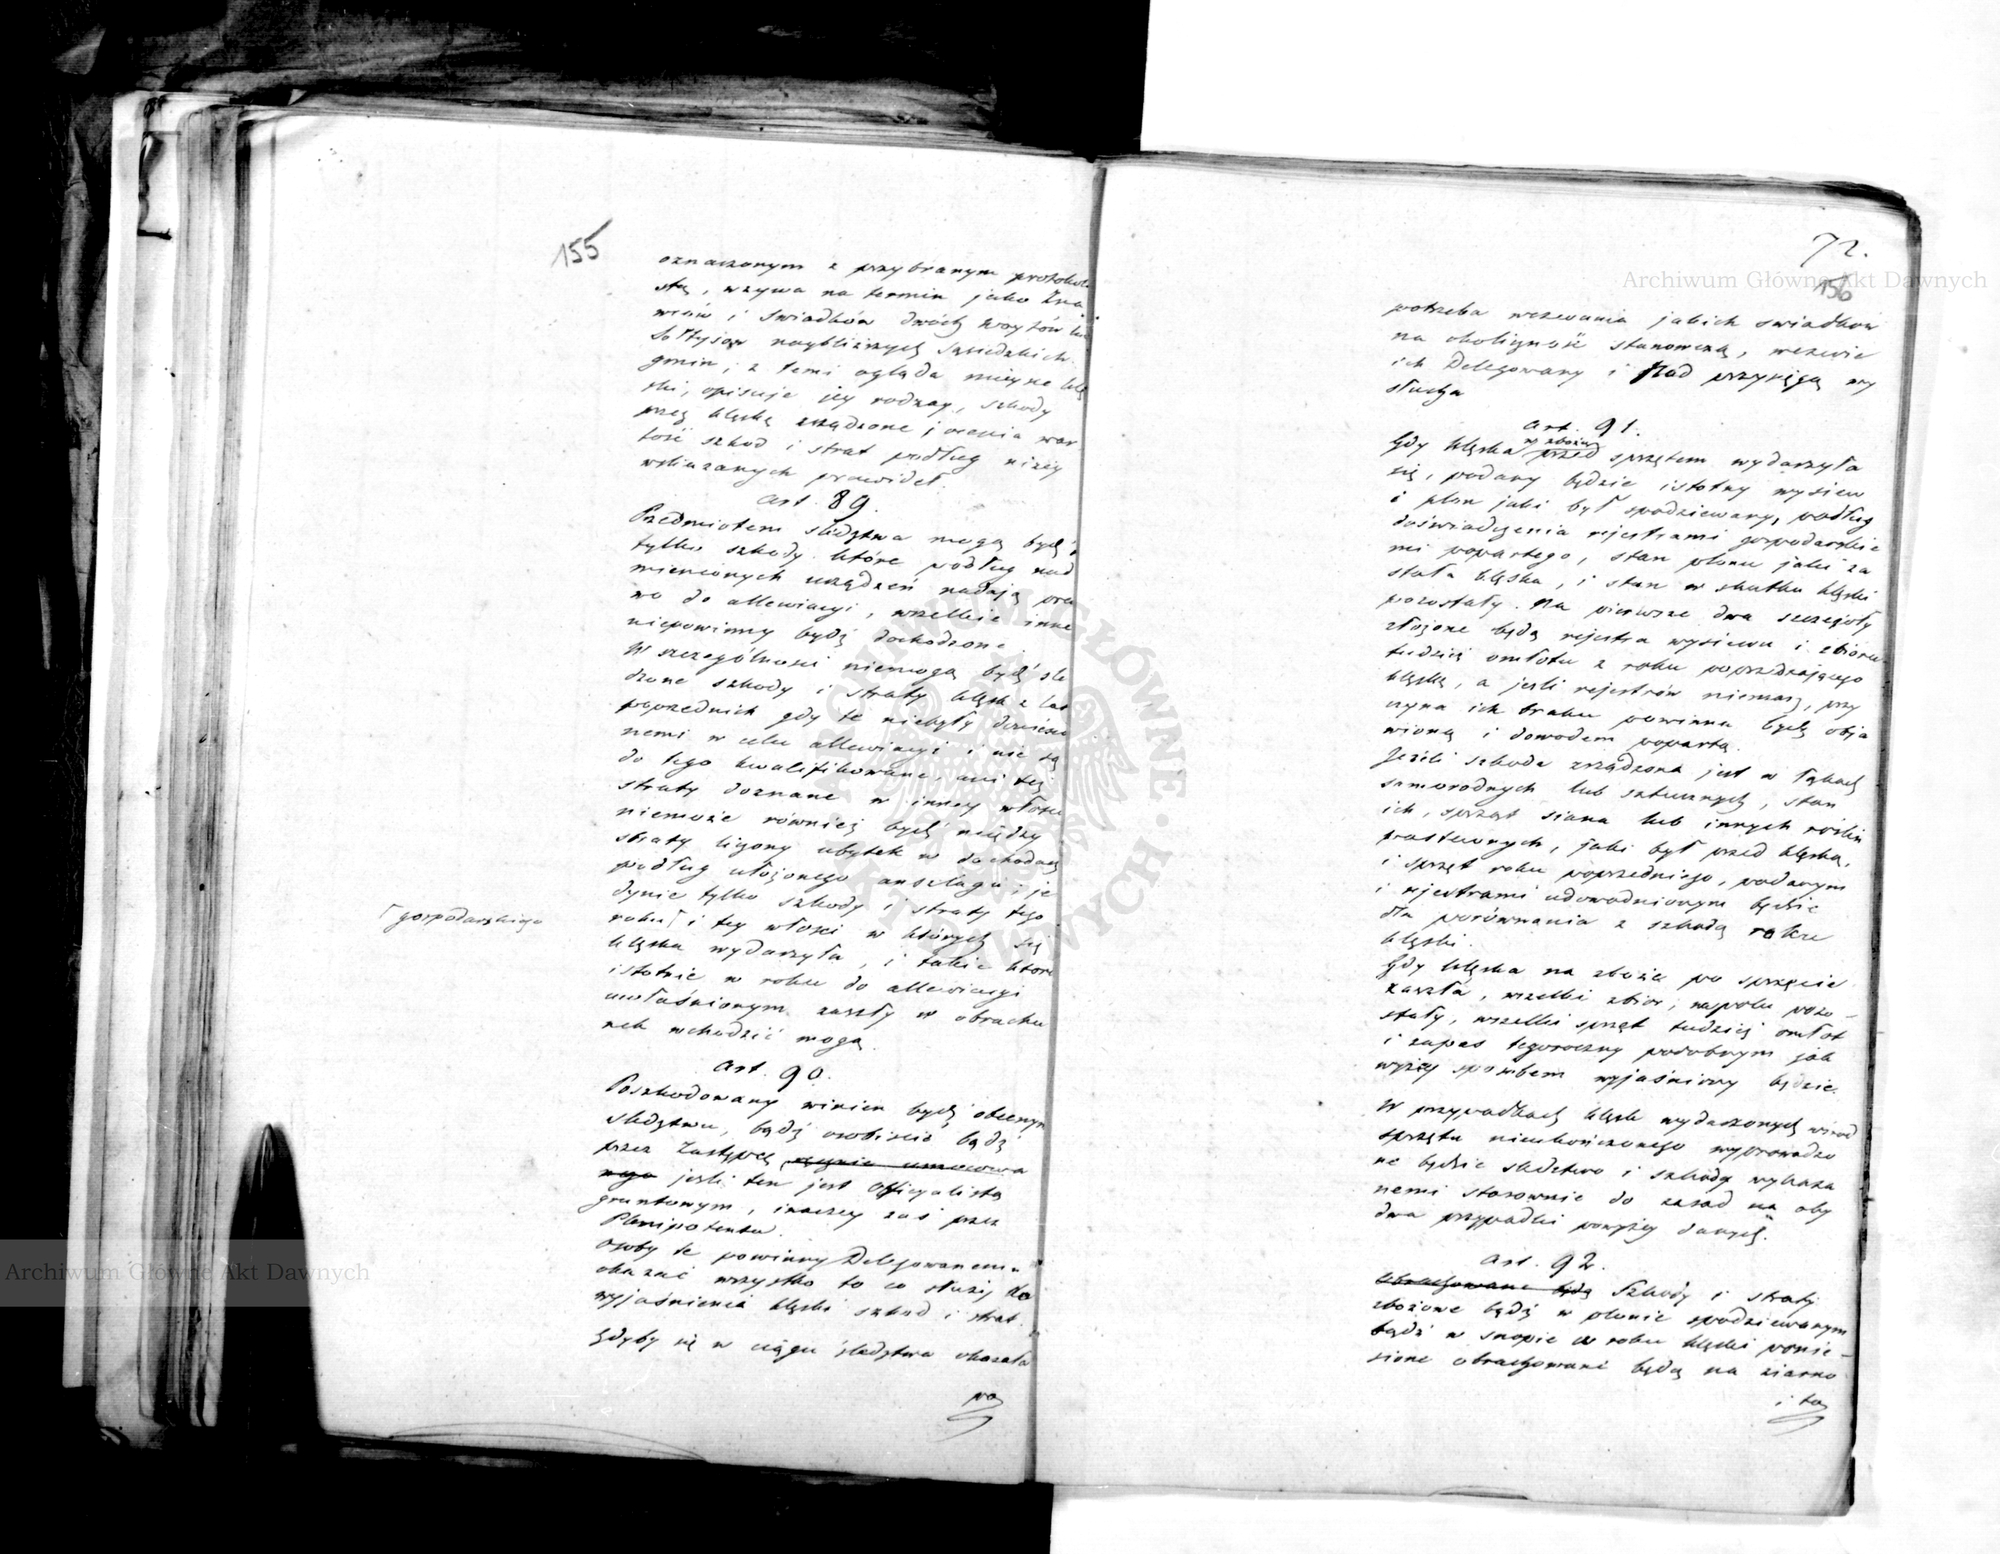 155
oznaczonym z przybranym protokuli
stą, wzywa na termin jako Zna
wców i świadków dwóch Woytów lub
Sołtysów naybliższych sąsiedzkich
gmin; z temi ogląda mieysce klę
ski, opisuje jey rodzay, szkody
przez klęskę zrządzone i ocenia war
tość szkod i strat podług niżey
wskazanych prawideł.
Art. 89.
Przedmiotem śledztwa mogą bydź
tylko szkody które podług nad
mienionych urządzeń nadają pra
wo do allewiacyi, wszelkie inne
niepowinny bydź dochodzone.
W szczególności niemogą bydź śle
dzone szkody i straty klęsk z lat
poprzednich gdy te niebyły
nemi w celu allewiacyi i nie są
do tego kwalifikowane, ani też
straty doznane w inney włości
niemoże również bydź między
straty liczony ubytek w dochodach
podług ułożonego anszlagu; je
dynie tylko szkody i straty tego
roku Γ i tey włości w których się
Γ gospodarskiego
klęska wydarzyła, i takie które
istotnie w roku do allewiacyi
zaszły w obrachu
nek wchodzić mogą.
Art. 90.
Poszkodowany winien bydź obecnym
śledztwu, bądź osobiście bądź
przez Zastępcę ręcznie umocowa
nego jeśli ten jest Officyalistą
gruntowym, inaczey zaś przez
Plenipotenta.
Osoby te powinny Delegowanemu
okazać wszystko to co służy do
wyjaśnienia klęski szkod i strat.
Gdyby się w ciągu śledztwa okazała
po
72.
156
potrzeba wezwania jakich swiadków
na okoliczność stanowczą, wezwie
ich Delegowany i Pod przysięgą wy
słucha
Art. 91.
w zbożu
Gdy klęska przed sprzętem wydarzyła
się, podany będzie istotny wysiew
i plon jaki był spodziewany, podług
doświadczenia rejestrami gospodarskie
mi popartego, stan plonu jaki za
stała klęska, i stan w skutku klęski
pozostały. Na pierwsze dwa szczegóły
złożone będą rejestra wysiewu i zbioru
tudzież omłotu z roku poprzedzającego
klęskę, a jeśli rejestrów niemasz, przy
czyna ich braku powinna bydź obja
wioną i dowodem popartą.
Jeżeli szkoda zrządzona jest w łąkach
samorodnych lub sztucznych, stan
ich, sprzęt siana lub innych roślin
pastewnych, jaki był przed klęską,
i sprzęt roku poprzedniego, podanym
i rejestrami udowodnionym będzie
dla porównania z szkodą roku
klęski.
Gdy klęska na zboże po sprzęcie
zaszła, wszelki zbior, na polu pozo-
stały, wszelki sprzęt tudzież omłot
i zapas tegoroczny podobnym jak
wyżey sposobem wyjaśniony będzie.
W przypadkach klęsk wydarzonych wśrod
sprzętu nieukończonego wyprowadzo
ne będzie śledztwo i szkody wykaza
nemi stosownie do zasad na oby
dwa przypadki powyżey danych.
Art. 92.
Obrachowane będą Szkody i straty
zbożowe bądź w plonie spodziewanym
bądź w snopie w roku klęski ponie-
sione obrachowane będą na ziarno
i to
Archiwum Główne Akt Dawnych
Archiwum Główne Akt Dawnych
ARCHIWUM GŁÓWNE AKT DAWNYCH